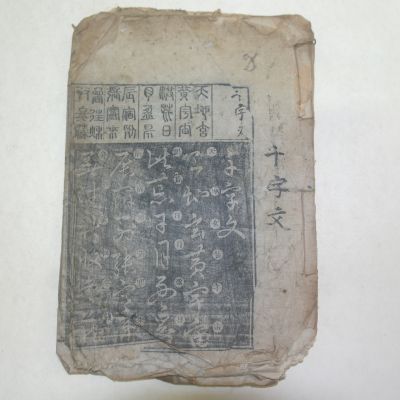 千字文
千字文
天地玄
黃宇宙
洪荒日
月盈昃
辰宿列
張寒來
暑往秋
收冬藏
千字文
天地玄黃宇宙
洪荒日月盈昃
辰宿列張寒來
暑往秋收冬藏